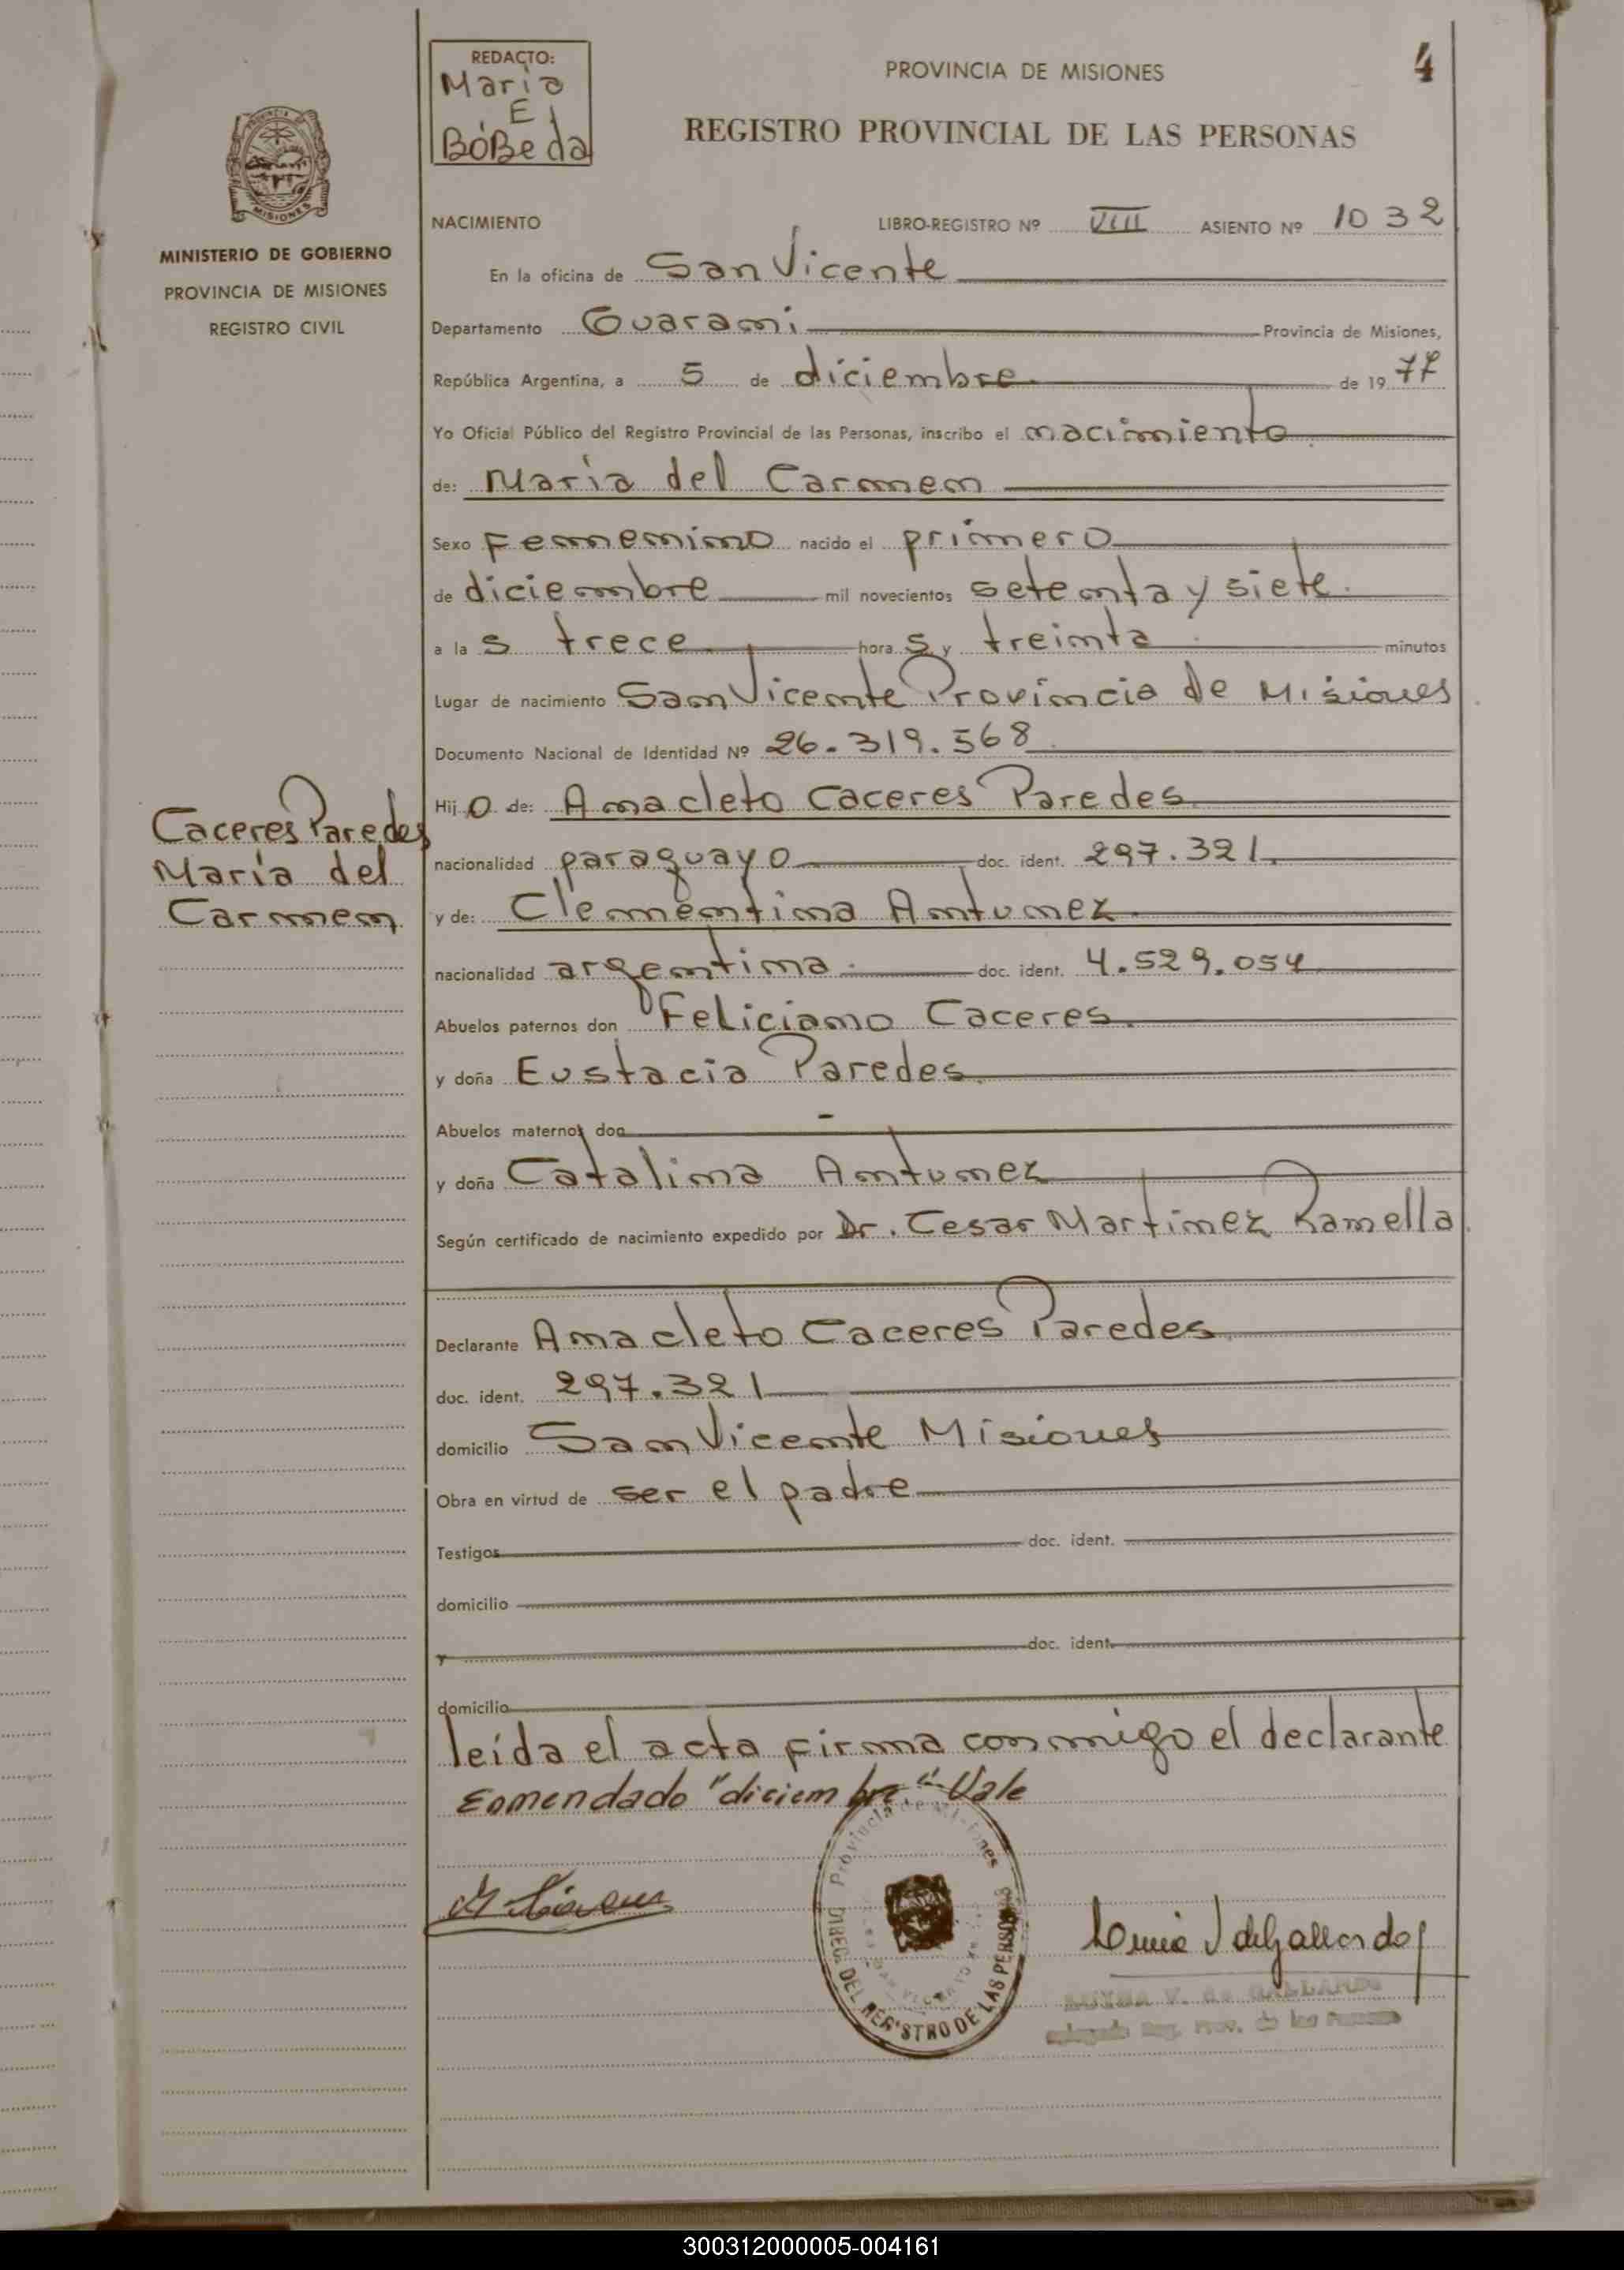 REDACTO:
Maria
E
BóBeda
PROVINCIA DE MISIONES
4
REGISTRO PROVINCIAL DE LAS PERSONAS
MISIONES
MINISTERIO DE GOBIERNO
PROVINCIA DE MISIONES
REGISTRO CIVIL
NACIMIENTO LIBRO-REGISTRO Nº VIII ASIENTO Nº 1032
En la oficina de San Vicente
Departamento Guarani Provincia de Misiones,
República Argentina, a 5 de diciembre de 1977
Yo Oficial Público del Registro Provincial de las Personas, inscribo el nacimiento
de: María del Carmen
Sexo Femenino nacido el primero
de diciembre mil novecientos setenta y siete
a las trece horas y treinta minutos
Lugar de nacimiento San Vicente Provincia de Misiones
Documento Nacional de Identidad Nº 26.319.568
Caceres Paredes
María del
Carmen
Hijo de: Anacleto Caceres Paredes
nacionalidad paraguayo doc. ident. 297.321
y de: Clementina Antunez
nacionalidad argentina doc. ident. 4.529.054
Abuelos paternos don Feliciano Caceres
y doña Eustacia Paredes
Abuelos maternos don
y doña Catalina Antunez
Según certificado de nacimiento expedido por Dr. Cesar Martinez Ramella
Declarante Anacleto Caceres Paredes
doc. ident. 297.321
domicilio San Vicente Misiones
Obra en virtud de ser el padre
Testigos doc. ident.
domicilio
y doc. ident.
domicilio
leída el acta firma conmigo el declarante
Enmendado "diciembre" Vale
Provincia de Misiones
DIREC. DEL REGISTRO DE LAS PERSONAS
V. de GALLARDO
Reg. Prov. de las Personas
300312000005-004161